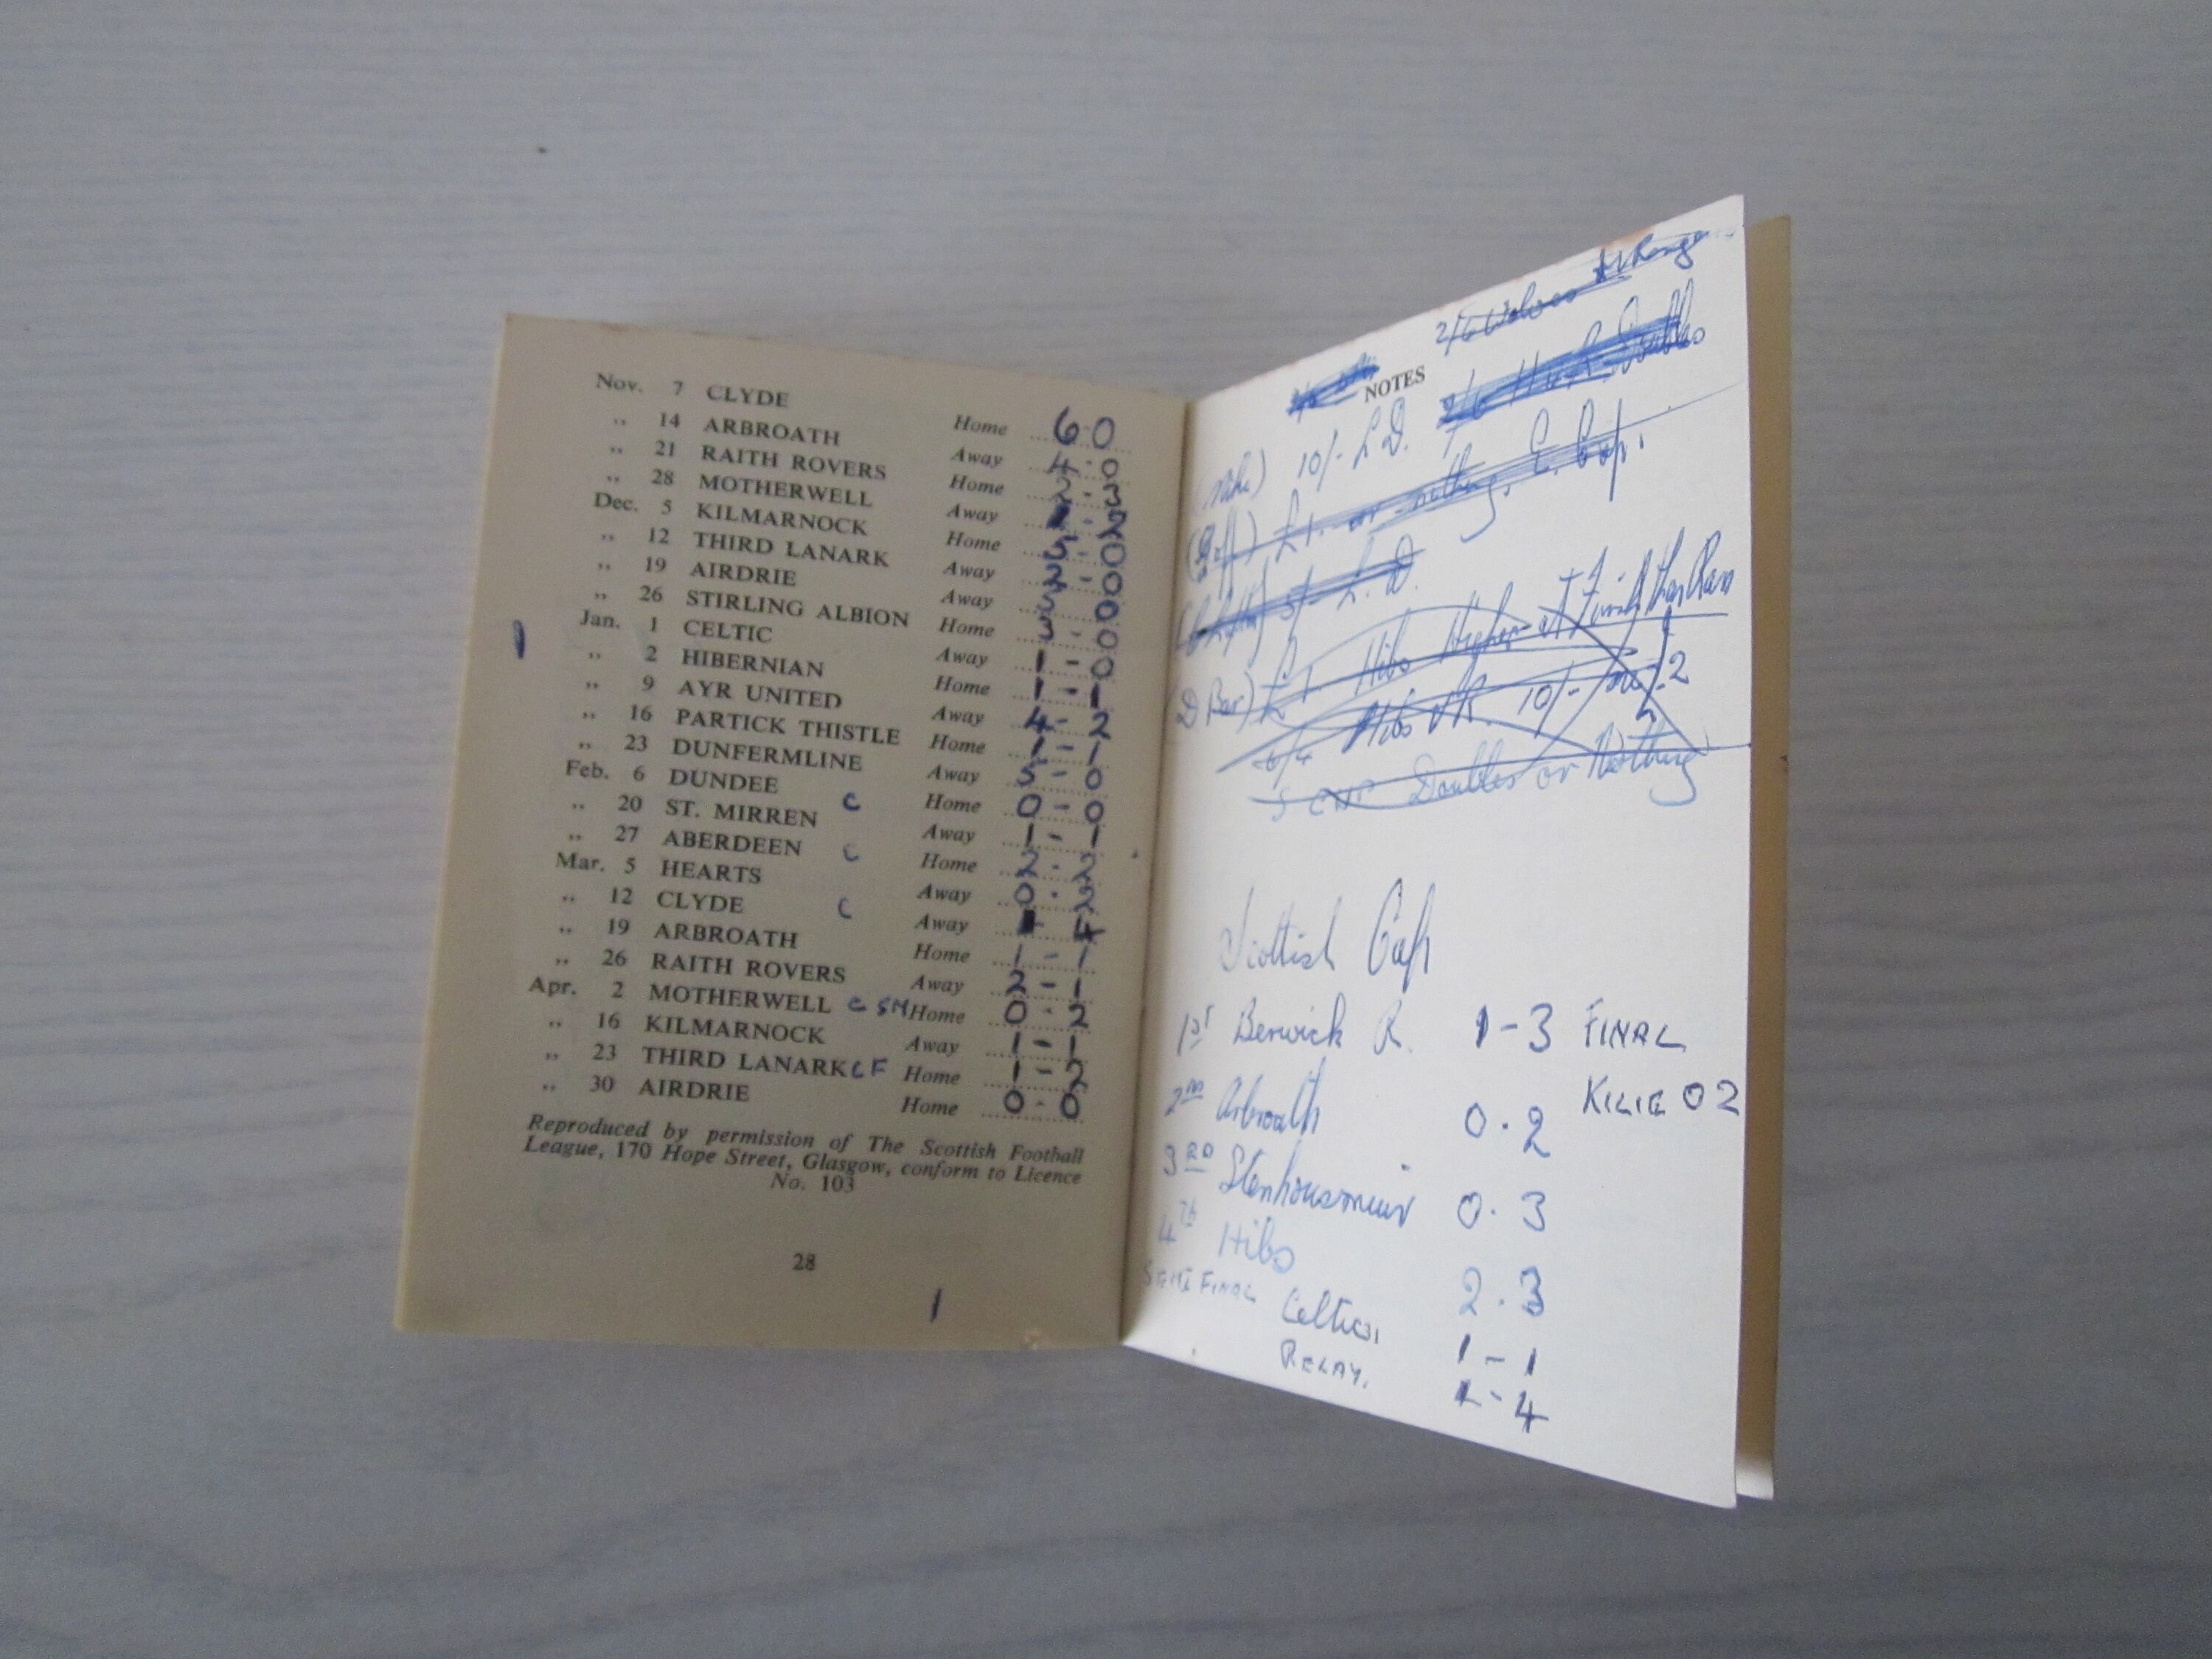 Nov. 7 CLYDE Home 6-0
,, 14 ARBROATH Away 4-0
,, 21 RAITH ROVERS Home 2-3
,, 28 MOTHERWELL Away - 2
Dec. 5 KILMARNOCK Home - 0
,, 12 THIRD LANARK Away 2-0
,, 19 AIRDRIE Away - 0
,, 26 STIRLING ALBION Home 3-0
Jan. 1 CELTIC Away 1-0
,, 2 HIBERNIAN Home 1-1
,, 9 AYR UNITED Away 4-2
,, 16 PARTICK THISTLE Home 1-1
,, 23 DUNFERMLINE Away 5-0
Feb. 6 DUNDEE C Home 0-0
,, 20 ST. MIRREN Away 1-1
,, 27 ABERDEEN C Home 2-2
Mar. 5 HEARTS Away 0-2
,, 12 CLYDE C Away 4
,, 19 ARBROATH Home 1-1
,, 26 RAITH ROVERS Away 2-1
Apr. 2 MOTHERWELL C SM Home 0-2
,, 16 KILMARNOCK Away 1-1
,, 23 THIRD LANARK CF Home 1-2
,, 30 AIRDRIE Home 0-0
Reproduced by permission of The Scottish Football
League, 170 Hope Street, Glasgow, conform to Licence
No. 103
28
2/6 Wolves
Doubles
NOTES
10/- L.D.
£1. or nothing. L. Cup.
5/- L.D.
(D Bar) £1. Hibs Higher at Finish than Ran
Hibs v R. 10/-
S CUP Doubles or Nothing
Scottish Cup
1ST Berwick R. 1-3 FINAL
KILIE 0 2
2ND Arbroath 0.2
3RD Stenhousemuir 0.3
4TH Hibs 2.3
SEMI FINAL Celtic 1-1
RELAY. 1-4